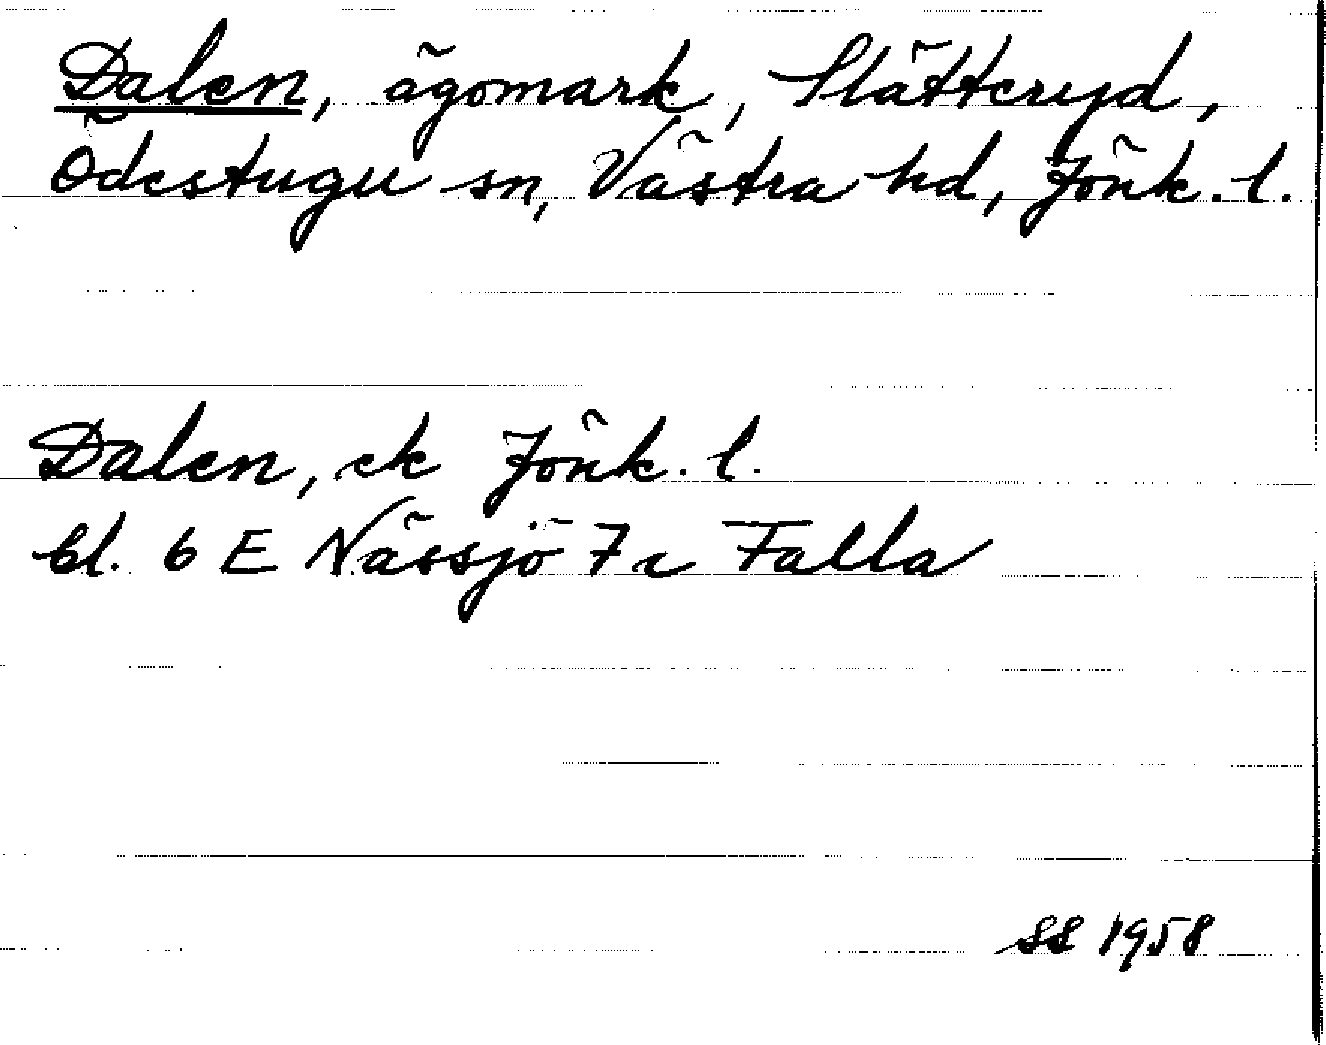 Dalen, ägomark, Slätteryd,
Ödestugu sn, Västra hd, Jönk. l.
Dalen, ek Jönk. l.
bl. 6 E Nässjö 7 c Falla
SS 1958